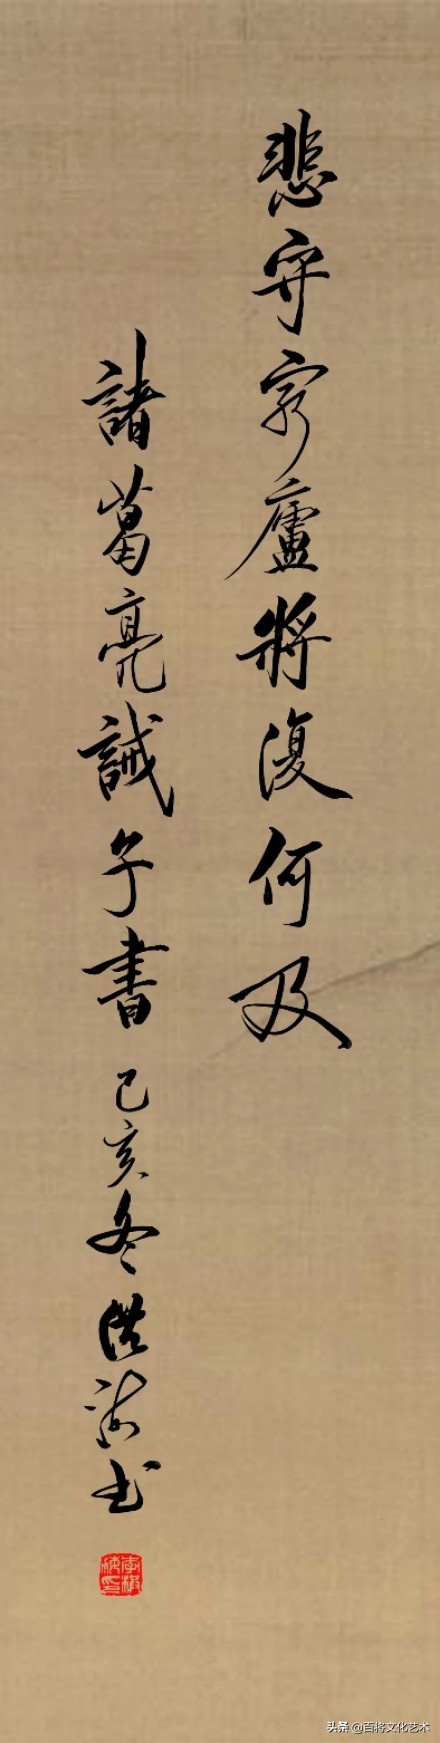 悲守窮廬將復何及
諸葛亮誡子書 己亥冬洪海书
头条 @百将文化艺术